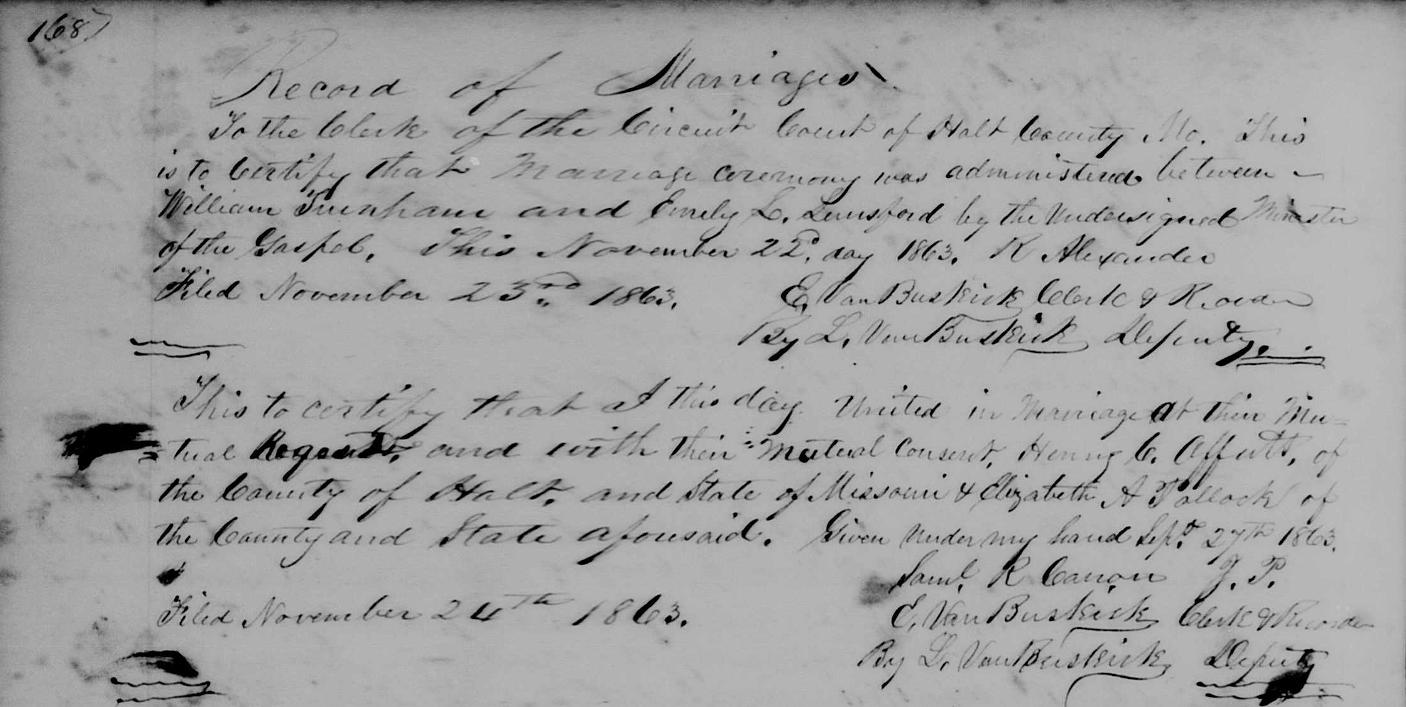 168)
Record of Marriages
To the Clerk of the Circuit Court of Holt County Mo. This
is to Certify that Marriage ceremony was administered between
William and Emily L. Lunsford by the Undersigned Minister
of the Gospel. This November 22d. day 1863. R Alexander
Filed November 23rd. 1863. E. VanBuskirk Clerk & Recorder
By L. VanBuskirk Deputy.
This to certify that I this day United in Marriage at their Mu-
tual Request, and with their Mutual Consent, Henry C. Offutt, of
the County of Holt, and State of Missouri & Elizabeth A Pollock of
the County and State aforesaid. Given Under my hand Sept. 27th 1863.
Saml. R Canon J. P.
Filed November 24th 1863. E. VanBuskirk Clerk & Recorder
By L. VanBuskirk Deputy